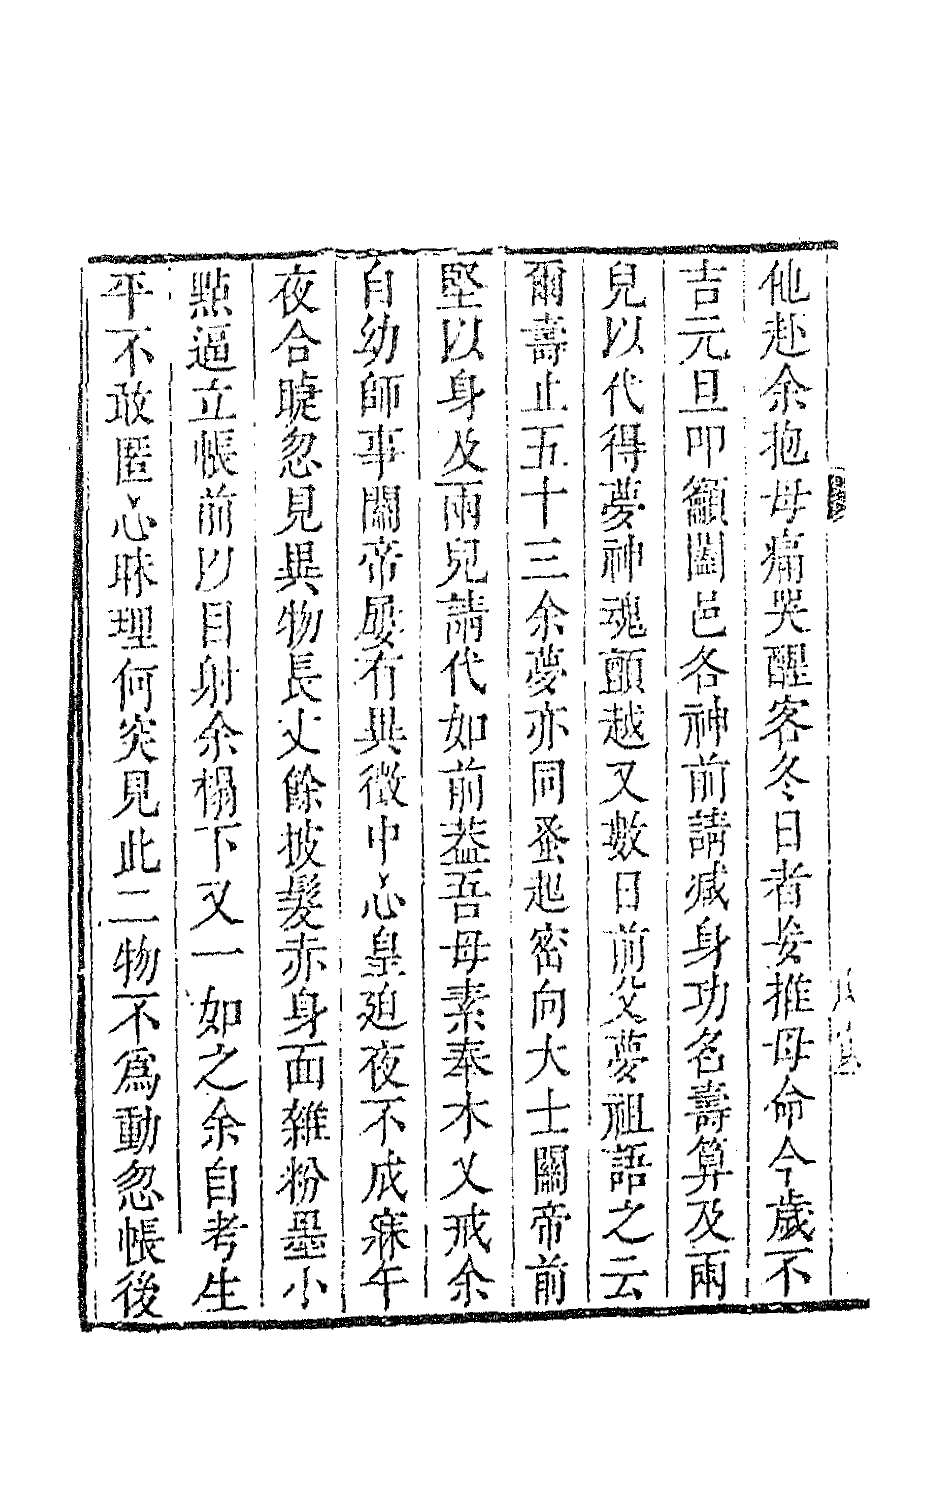 他赴余抱母痛哭醒客冬日者妄推母命今歲不
吉元旦叩籲闔邑各神前請减身功名壽算及兩
兒以代得夢神魂顫越又數日前父夢祖語之云
爾壽止五十三余夢亦同蚤起密向大士關帝前
堅以身及兩兒請代如前葢吾母素奉木乂戒余
自幼師事關帝屢有異徵中心皇廹夜不成寐午
夜合睫忽見異物長丈餘披髮赤身面雜粉墨小
點逼立帳前以目射余榻下又一如之余自考生
平不敢匿心昧理何突見此二物不爲動忽帳後